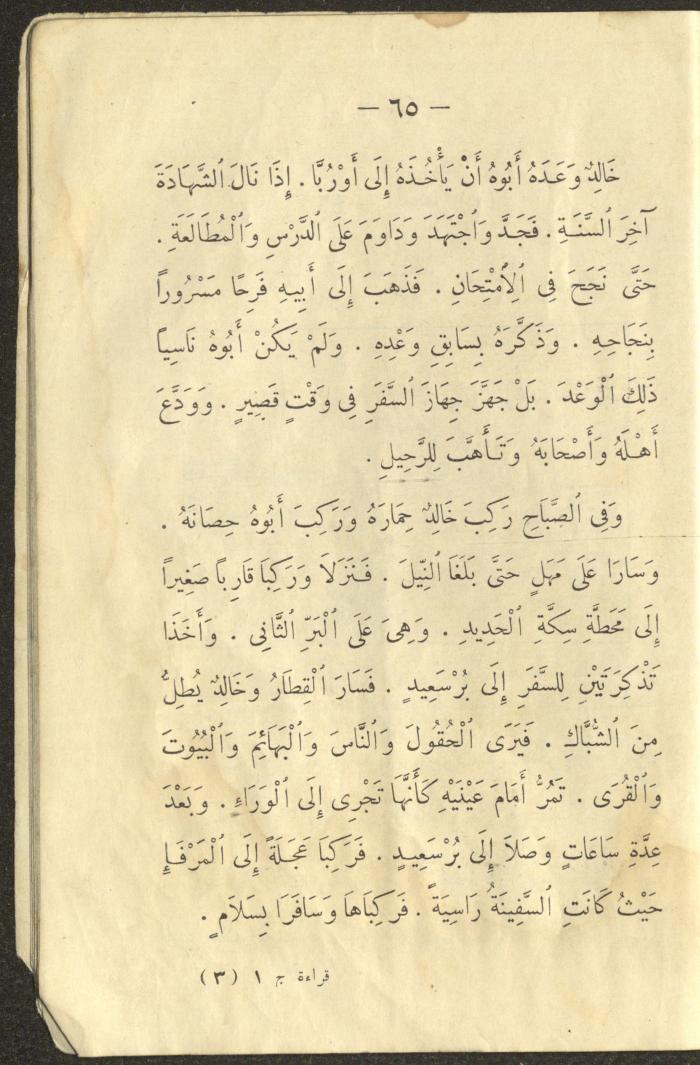 — ٦٥ —
خَالِدٌ وَعَدَهُ أَبُوهُ أَنْ يَأْخُذَهُ إِلَى أَوْرُبَّا . إِذَا نَالَ ٱلشَّهَادَةَ
آخِرَ ٱلسَّنَةِ . فَجَدَّ وَٱجْتَهَدَ وَدَاوَمَ عَلَى ٱلدَّرْسِ وَٱلْمُطَالَعَةِ .
حَتَّى نَجَحَ فِى ٱلِٱمْتِحَانِ . فَذَهَبَ إِلَى أَبِيهِ فَرِحًا مَسْرُوراً
بِنَجَاحِهِ . وَذَكَّرَهُ بِسَابِقِ وَعْدِهِ . وَلَمْ يَكُنْ أَبُوهُ نَاسِياً
ذَلِكَ ٱلْوَعْدَ . بَلْ جَهَّزَ جِهَازَ ٱلسَّفَرِ فِى وَقْتٍ قَصِيرٍ . وَوَدَّعَ
أَهْلَهُ وَأَصْحَابَهُ وَتَأَهَّبَ لِلرَّحِيلِ .
وَفِى ٱلصَّبَاحِ رَكِبَ خَالِدٌ حِمَارَهُ وَرَكِبَ أَبُوهُ حِصَانَهُ .
وَسَارَا عَلَى مَهَلٍ حَتَّى بَلَغَا ٱلنِّيلَ . فَنَزَلَا وَرَكِبَا قَارِباً صَغِيراً
إِلَى مَحَطَّةِ سِكَّةِ ٱلْحَدِيدِ . وَهِىَ عَلَى ٱلْبَرِّ ٱلثَّانِى . وَأَخَذَا
تَذْكِرَتَيْنِ لِلسَّفَرِ إِلَى بُرْسَعِيدٍ . فَسَارَ ٱلْقِطَارُ وَخَالِدٌ يُطِلُّ
مِنَ ٱلشُّبَّاكِ . فَيَرَى ٱلْحُقُولَ وَٱلنَّاسَ وَٱلْبَهَائِمَ وَٱلْبُيُوتَ
وَٱلْقُرَى . تَمُرُّ أَمَامَ عَيْنَيْهِ كَأَنَّهَا تَجْرِى إِلَى ٱلْوَرَاءِ . وَبَعْدَ
عِدَّةِ سَاعَاتٍ وَصَلَا إِلَى بُرْسَعِيدٍ . فَرَكِبَا عَجَلَةً إِلَى ٱلْمَرْفَإِ
حَيْثُ كَانَتِ ٱلسَّفِينَةُ رَاسِيَةً . فَرَكِبَاهَا وَسَافَرَا بِسَلَامٍ .
قراءة ج ١ (٣)